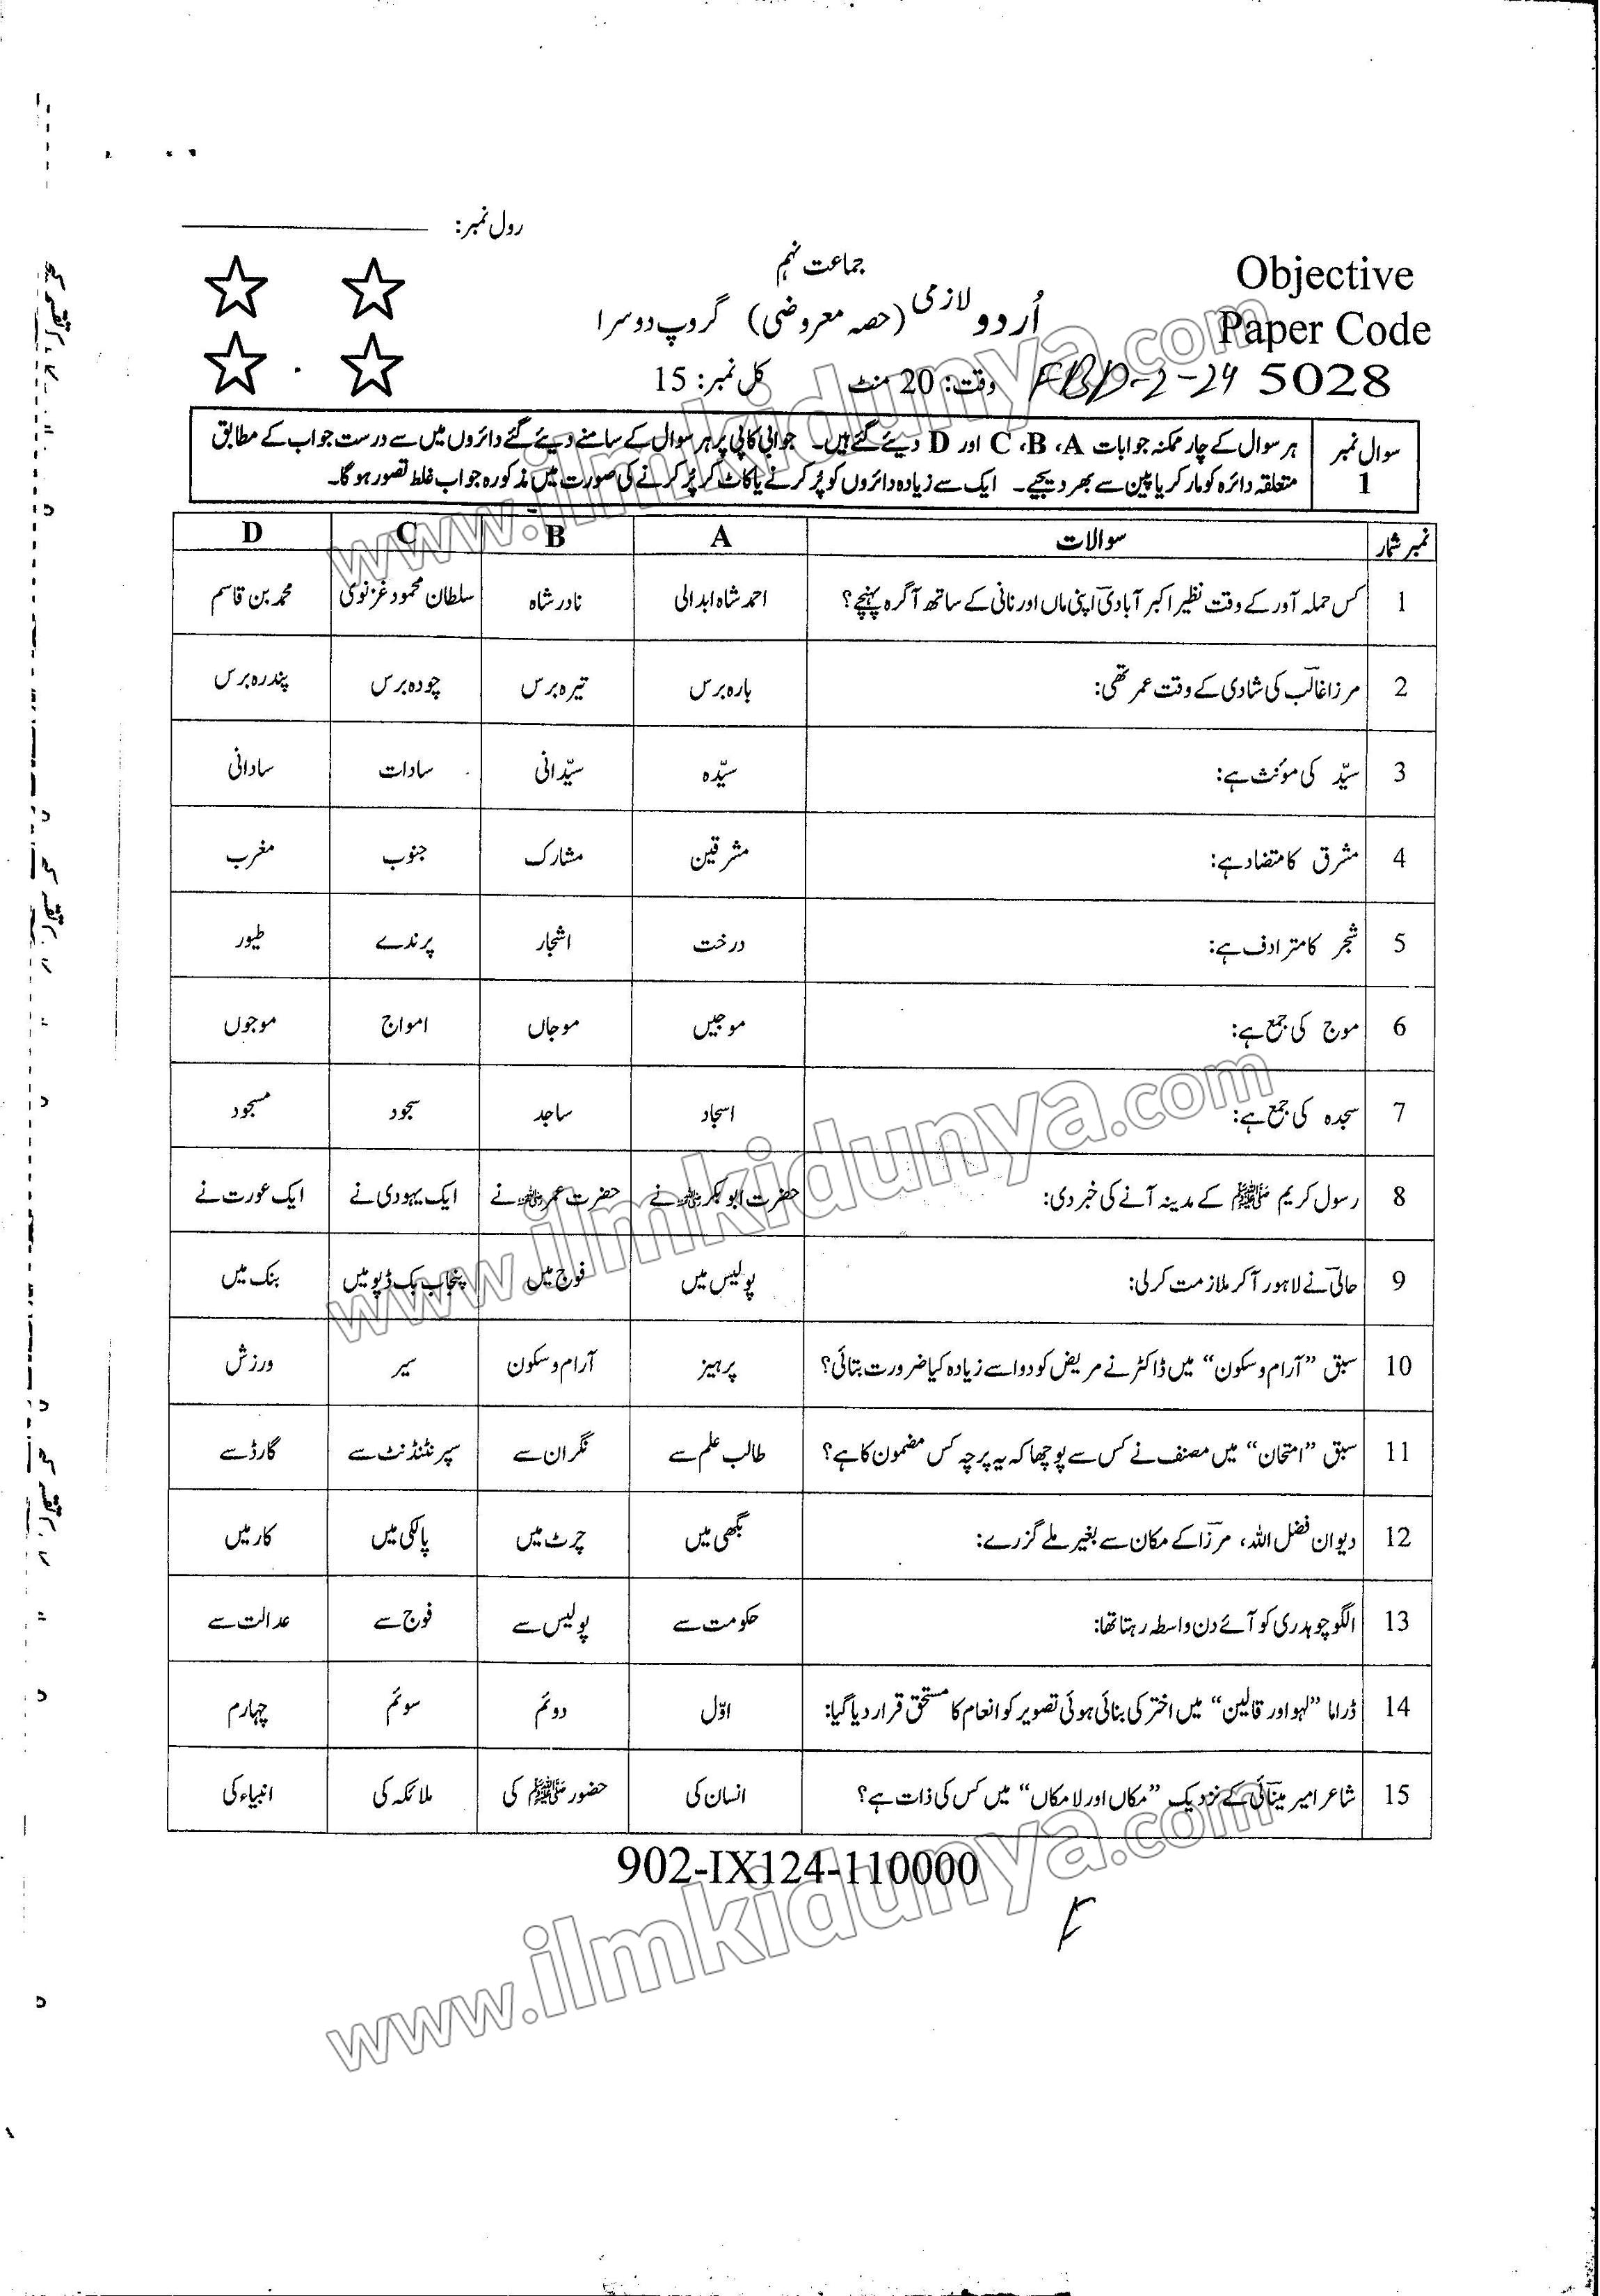 رول نمبر:
جماعت نہم
Objective
اُردو لازمی (حصہ معروضی) گروپ دوسرا
Paper Code
وقت: 20 منٹ کل نمبر: 15
FBD-2-24 5028
سوال نمبر 1
ہر سوال کے چار ممکنہ جوابات A، B، C اور D دیئے گئے ہیں۔ جوابی کاپی پر ہر سوال کے سامنے دیئے گئے دائروں میں سے درست جواب کے مطابق
متعلقہ دائرہ کو مارکر یا پین سے بھر دیجیے۔ ایک سے زیادہ دائروں کو پُر کرنے یا کاٹ کر پُر کرنے کی صورت میں مذکورہ جواب غلط تصور ہوگا۔
نمبر شمار سوالات A B C D
1 کس حملہ آور کے وقت نظیر اکبر آبادیؔ اپنی ماں اور نانی کے ساتھ آگرہ پہنچے؟ احمد شاہ ابدالی نادر شاہ سلطان محمود غزنوی محمد بن قاسم
2 مرزا غالبؔ کی شادی کے وقت عمر تھی: بارہ برس تیرہ برس چودہ برس پندرہ برس
3 سیّد کی مونث ہے: سیّدہ سیّدانی سادات سادانی
4 مشرق کا متضاد ہے: مشرقین مشارک جنوب مغرب
5 شجر کا مترادف ہے: درخت اشجار پرندے طیور
6 موج کی جمع ہے: موجیں موجاں امواج موجوں
7 سجدہ کی جمع ہے: اسجاد ساجد سجود مسجود
8 رسول کریم ﷺ کے مدینہ آنے کی خبر دی: حضرت ابوبکرؓ نے حضرت عمرؓ نے ایک یہودی نے ایک عورت نے
9 حالیؔ نے لاہور آکر ملازمت کرلی: پولیس میں فوج میں پنجاب بک ڈپو میں بنک میں
10 سبق ”آرام و سکون“ میں ڈاکٹر نے مریض کو دوا سے زیادہ کیا ضرورت بتائی؟ پرہیز آرام و سکون سیر ورزش
11 سبق ”امتحان“ میں مصنف نے کس سے پوچھا کہ یہ پرچہ کس مضمون کا ہے؟ طالب علم سے نگران سے سپرنٹنڈنٹ سے گارڈ سے
12 دیوان فضل اللہ، مرزاؔ کے مکان سے بغیر ملے گزرے: بگھی میں چرٹ میں پالکی میں کار میں
13 الگو چوہدری کو آئے دن واسطہ رہتا تھا: حکومت سے پولیس سے فوج سے عدالت سے
14 ڈراما ”لہو اور قالین“ میں اختر کی بنائی ہوئی تصویر کو انعام کا مستحق قرار دیا گیا: اوّل دوئم سوئم چہارم
15 شاعر امیر مینائیؔ کے نزدیک ”مکاں اور لامکاں“ میں کس کی ذات ہے؟ انسان کی حضور ﷺ کی ملائکہ کی انبیاء کی
902-IX124-110000
www.ilmkidunya.com
www.ilmkidunya.com
www.ilmkidunya.com